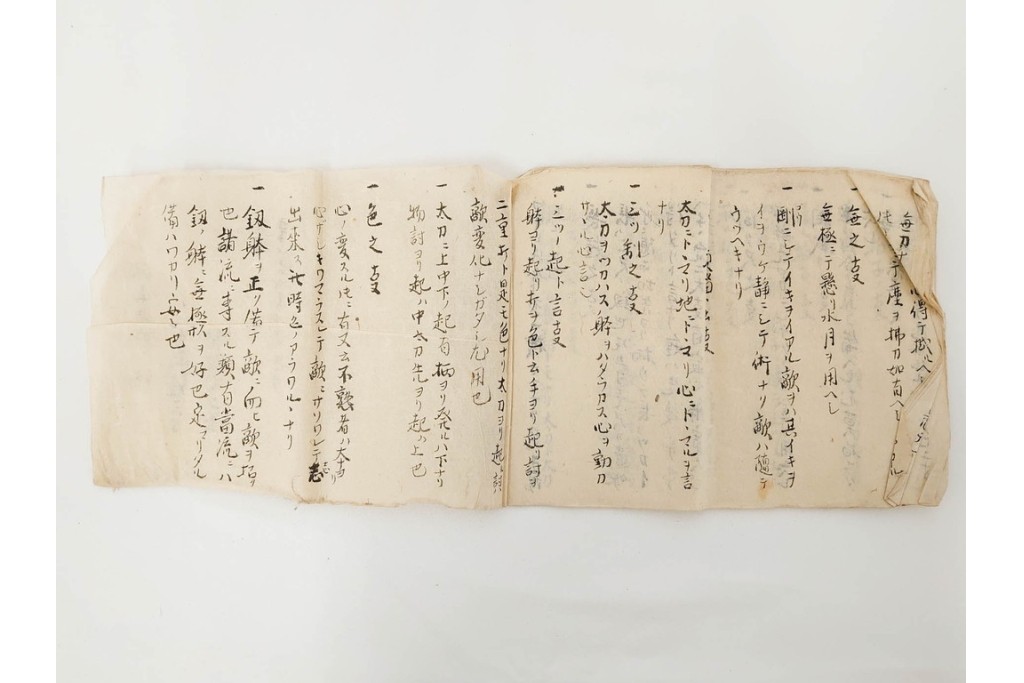 無刀ナ 心得テ蔵ルヘシ
ヲ塵ヲ拂刀如有ヘシ
一 無之支
無極ニテ懸リ水月ヲ用ヘシ
一 酣ニシテイキヲイアル敵ヲハ其イキヲ
イヲウケ静ニシテ術ナリ敵ハ
ウツヘキナリ
太刀ニトヽマリ地ニトヽマリ心ニトヽマルヲ言
ナリ
一 三ツ割之支
太刀ヲツカハス躰ヲハタラカス心ヲ動カ
サヽル心言
一 三ツノ起ト言支
躰ヨリ起リ打ヲ色ト云手ヨリ起リ討ヲ
二重打ト是モ色ナリ太刀ヨリ起リ討ハ
敵変化ナシガタシ尤用也
一 太刀ニ上中下ノ起有柄ヨリ発ルハ下ナリ
物討ヨリ起ハ中太刀先ヨリ起ハ上也
一 色之支
心ノ変スル代ニ有又云不懸者ハ大事ナリ
心サレキワマラスシテ敵ニサソワレテ志
出来ス此時色ノアラワルヽナリ
一 釼躰ヲ正ク備テ敵ニ向ヒ敵ヲ招
也諸流ニ専スル類有當流ニハ
釼ノ躰ニ無極ヲ好也定マリタル
備ハワカリ安シ也